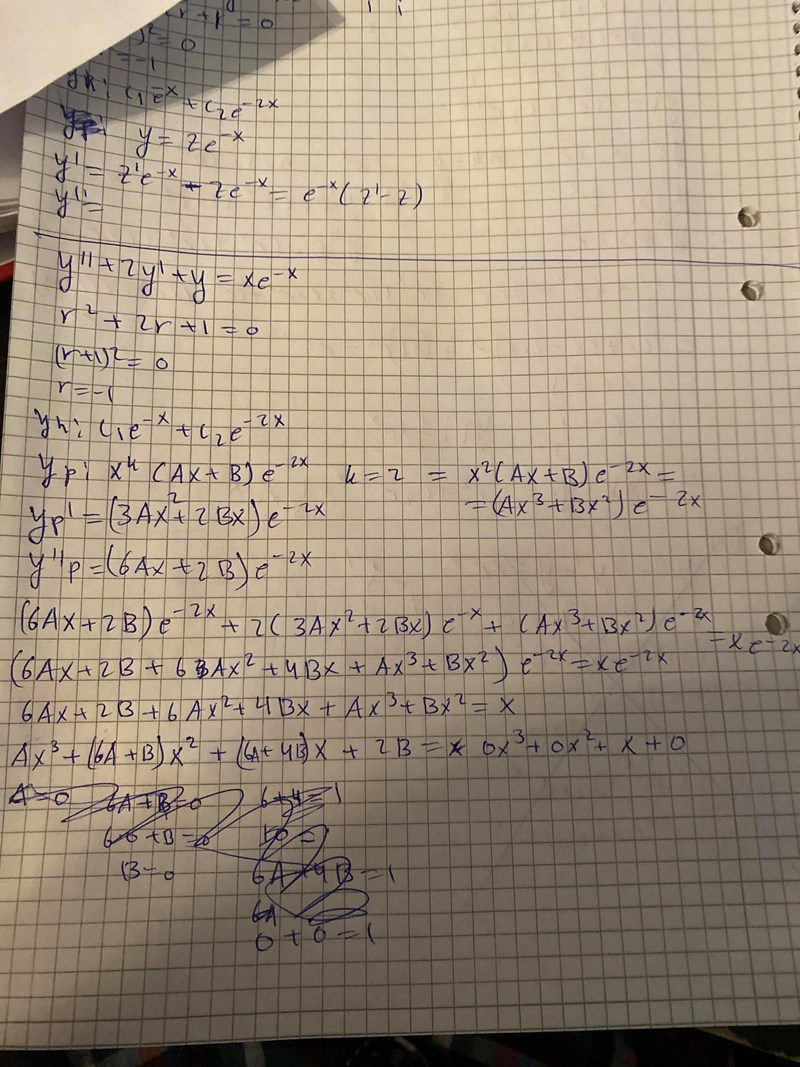 r + 1 = 0
)² = 0
= -1
yh: C₁e⁻ˣ + C₂e⁻²ˣ
y = ze⁻ˣ
y' = z'e⁻ˣ - ze⁻ˣ = e⁻ˣ(z' - z)
y'' =
y'' + 2y' + y = xe⁻ˣ
r² + 2r + 1 = 0
(r+1)² = 0
r = -1
yh: C₁e⁻ˣ + C₂e⁻²ˣ
yp: xᵏ (Ax + B) e⁻²ˣ k = 2 = x²(Ax + B) e⁻²ˣ =
= (Ax³ + Bx²) e⁻²ˣ
yp' = (3Ax² + 2Bx) e⁻²ˣ
y''p = (6Ax + 2B) e⁻²ˣ
(6Ax + 2B) e⁻²ˣ + 2(3Ax² + 2Bx) e⁻ˣ + (Ax³ + Bx²) e⁻²ˣ = xe⁻²ˣ
(6Ax + 2B + 6Ax² + 4Bx + Ax³ + Bx²) e⁻²ˣ = xe⁻²ˣ
6Ax + 2B + 6Ax² + 4Bx + Ax³ + Bx² = x
Ax³ + (6A + B)x² + (6A + 4B)x + 2B = 0x³ + 0x² + x + 0
A = 0 6A + B = 0 6 + 4 = 1
B = 0 6A + 4B = 1
6A
0 + 0 = 1